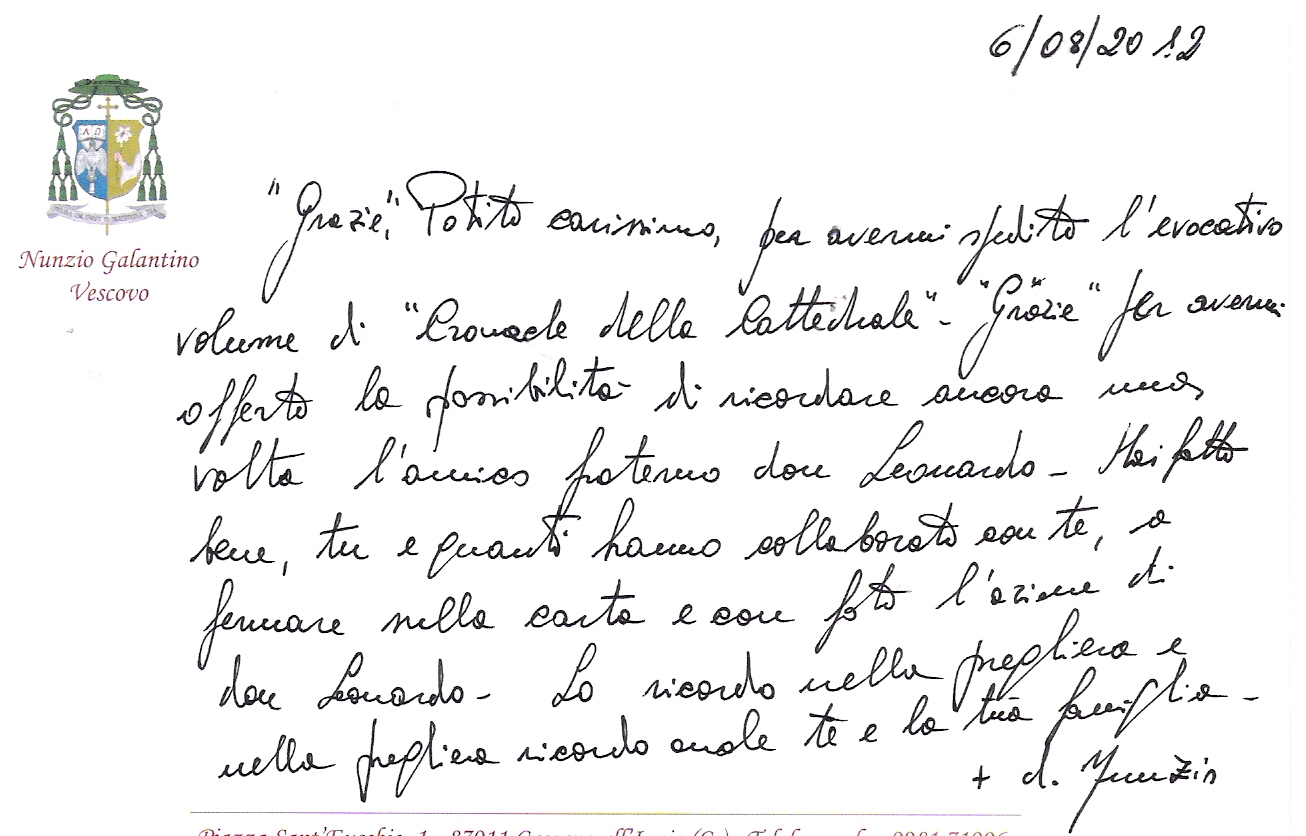 6/08/2012
Nunzio Galantino
Vescovo
"Grazie", Potito carissimo, per avermi spedito l'evocativo
volume di "Cronache della Cattedrale" - "Grazie" per avermi
offerto la possibilità di ricordare ancora una
volta l'amico fraterno don Leonardo - Hai fatto
bene, tu e quanti hanno collaborato con te, a
fermare sulla carta e con foto l'azione di
don Leonardo - Lo ricordo nella preghiera e
nella preghiera ricordo anche te e la tua famiglia -
+ d. Nunzio